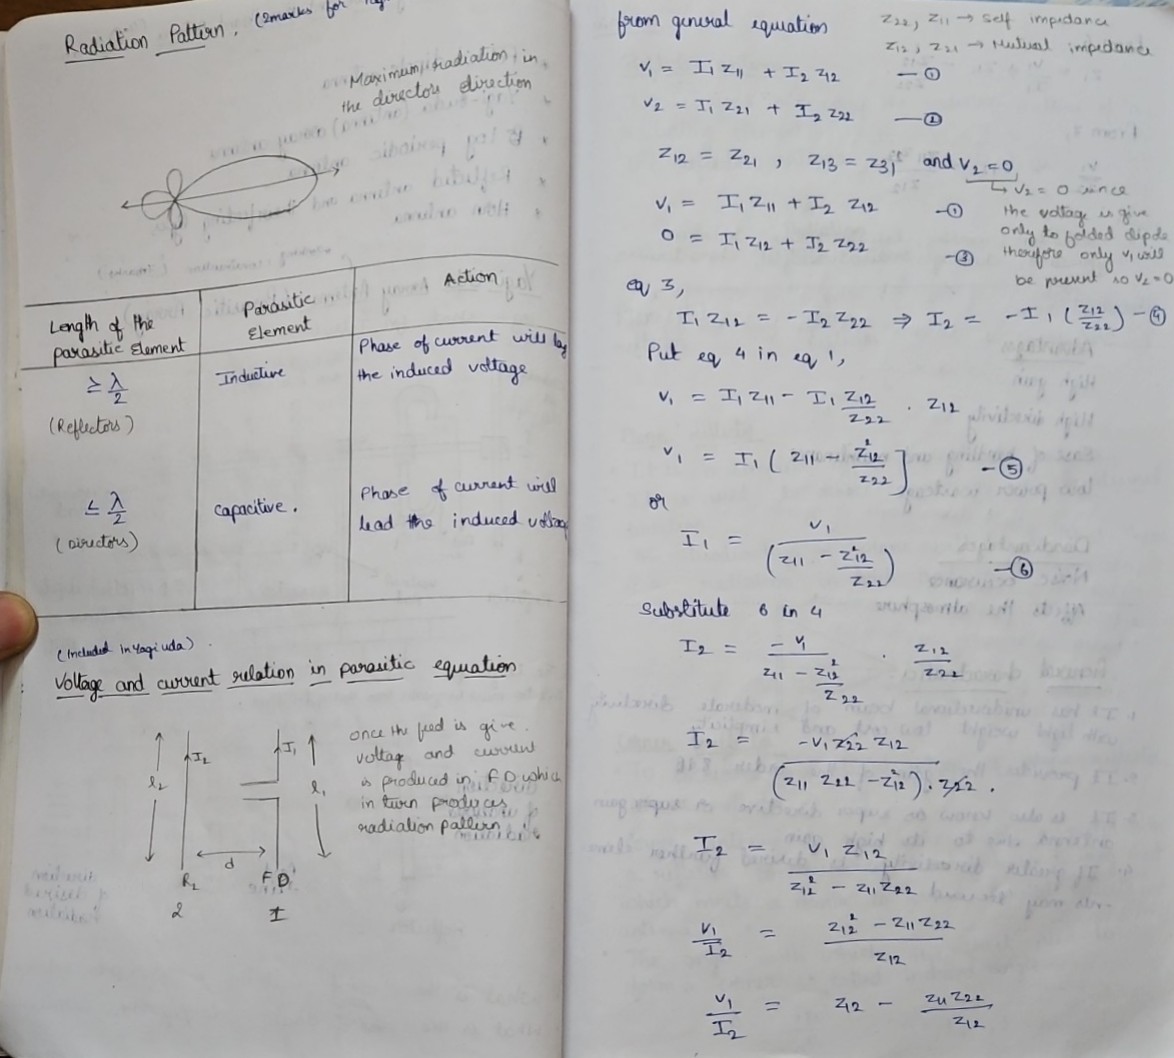 Radiation Pattern. (2marks for
Maximum radiation in
the directors direction
Length of the
parasitic Element
Parasitic
Element
Action
≥ λ/2
(Reflectors)
Inductive
Phase of current will lag
the induced voltage
≤ λ/2
(Directors)
capacitive.
Phase of current will
lead the induced voltage
(Included in Yagi uda).
Voltage and current relation in parasitic equation
l2
I2
I1
l1
d
R2
FD
2
1
once the feed is give
voltage and current
is produced in FD which
in turn produces
radiation pattern
from general equation
Z22, Z11 → Self impedance
Z12, Z21 → Mutual impedance
V1 = I1 Z11 + I2 Z12 —①
V2 = I1 Z21 + I2 Z22 —②
Z12 = Z21 , Z13 = Z31 and V2 = 0
↳ V2 = 0 since
the voltag is give
only to folded dipole
therefore only V1 will
be present so V2 = 0
V1 = I1 Z11 + I2 Z12 —①
0 = I1 Z12 + I2 Z22 —③
eq 3,
I1 Z12 = -I2 Z22 ⇒ I2 = -I1 (Z12/Z22) —④
Put eq 4 in eq 1,
V1 = I1 Z11 - I1 Z12/Z22 . Z12
V1 = I1 ( Z11 - Z12²/Z22 ] —⑤
or
I1 = V1/(Z11 - Z12²/Z22) —⑥
Substitute 6 in 4
I2 = -V1/(Z11 - Z12²/Z22) . Z12/Z22
I2 = -V1 Z22 Z12/(Z11 Z22 - Z12²) . Z22 .
I2 = V1 Z12/(Z12² - Z11 Z22)
V1/I2 = (Z12² - Z11 Z22)/Z12
V1/I2 = Z12 - Z11 Z22/Z12